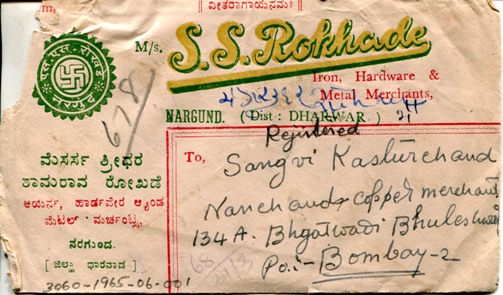 || ವೀತರಾಗಾಯನಮಃ ||
M/s. S. S. Rokhade
Iron, Hardware &
Metal Merchants,
NARGUND. (Dist: DHARWAR.)
678
Registered
ಮೆಸರ್ಸ ಶ್ರೀಧರ
ಶಾಮರಾವ ರೋಖಡೆ
ಆಯರ್ನ, ಹಾರ್ಡವೇರ ಆ್ಯಂಡ
ಮೆಟಲ್ ಮರ್ಚಂಟ್ಸ,
ನರಗುಂದ.
[ ಜಿಲ್ಹಾ ಧಾರವಾಡ ]
To,
Sangvi Kasturchand
Nanchand & copper merchant
134 A. Bhgatwadi Bhuleshwar
Po:- Bombay-2
3060-1965-06-001